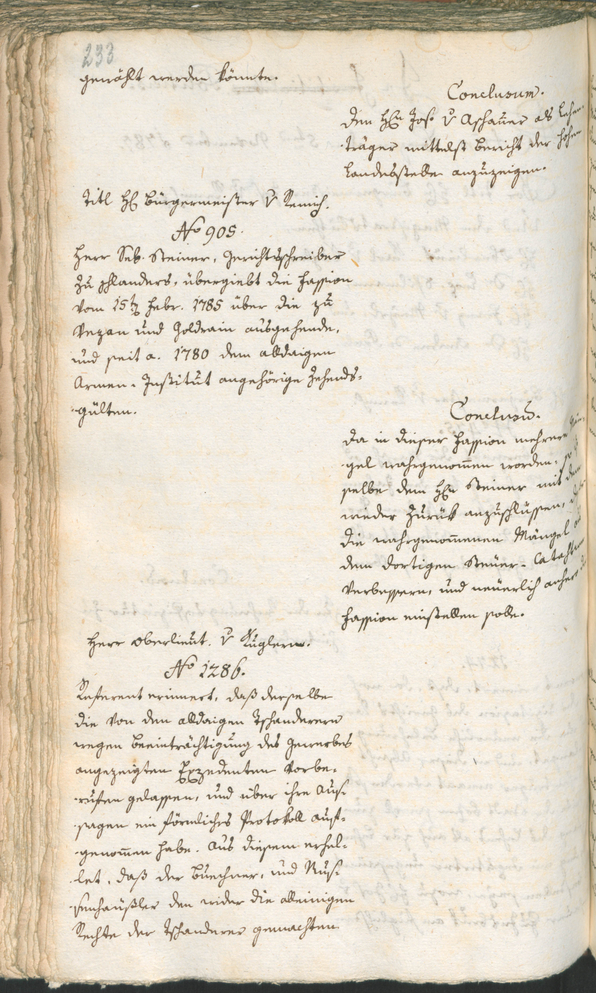 233
gewählt werden könnte.
Conclusum.
Dem H&#770;n Jos. v Aschauer als Lehen-
träger mittelst Bericht der hohen
Landesstelle anzuzeigen.
Titl H: Bürgermeister v Remich.
No 905.
Herr Seb. Steiner, Gerichtsschreiber
zu Schlanders, übergiebt die Fassion
vom 15t Febr. 1785 über die zu
Vezan und Goldrain ausgehende,
und seit a. 1780 dem alldaigen
Armen-Institut angehörige Zehends-
gülten.
Conclusum.
Da in dieser Fassion mehrere
gel wahrgenommen worden,
selbe dem Hn Steiner mit dem
wieder zurük anzuschlüssen,
die wahrgenommenen Mängel
dem dortigen Steüer-Catastrum
verbessern, und neüerlich anhero
Fassion einstellen solle.
Herr Oberlieut. v Kuglern.
No 1286.
Referent erinnert, daß derselbe
die von den alldaigen Tschanderern
wegen Beeinträchtigung des Gewerbes
angezeigten Exzedenten vorbe-
rufen gelassen, und über ihre Aus-
sagen ein förmliches Protokoll auf-
genommen habe. Aus diesem erhel-
let, daß der Buechner, und
den wider die alleinigen
Rechte der Tschanderer gemachten